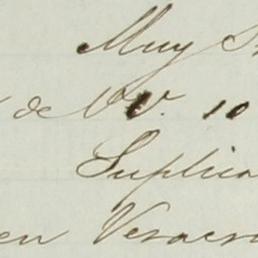 Muy S
de VV. 10
Suplica
en Veracru